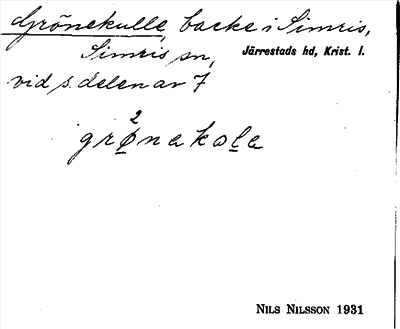 Grönekulle, backe i Simris,
Simris sn, Järrestads hd, Krist. l.
vid s. delen av 7
grø²nakola
NILS NILSSON 1931